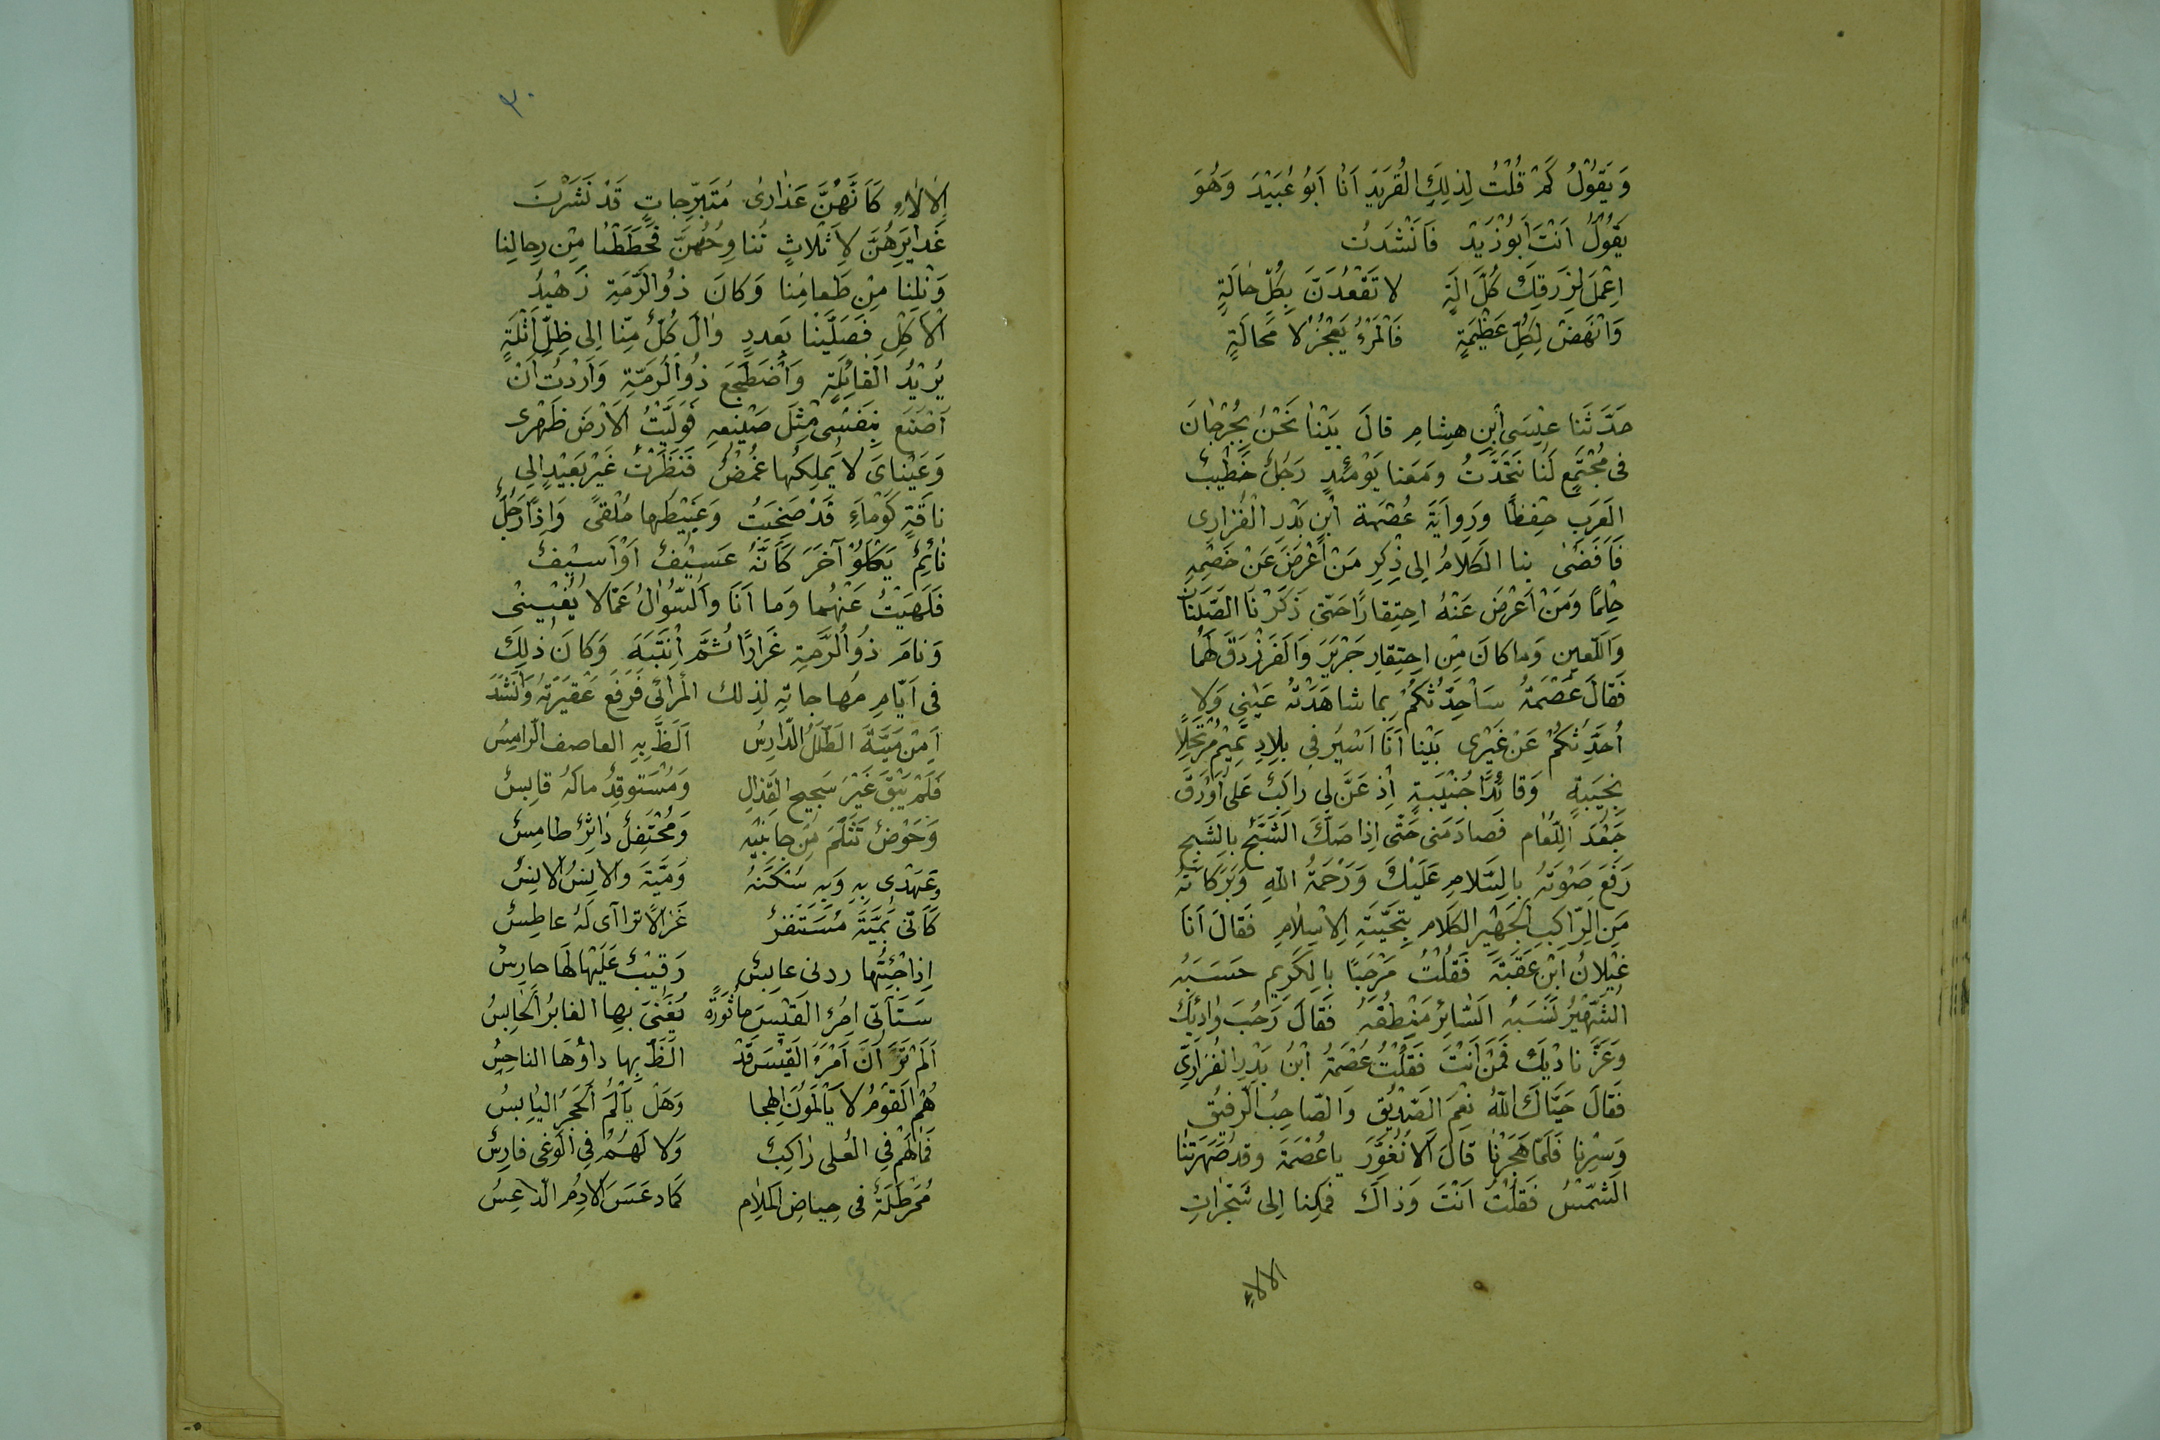 وَيَقُوْلُ كَمْ قُلْتُ لِذلِكِ القُرَيْدِ اَنَا اَبُو عُبَيْدَ وَهُوَ
يَقُوْلُ اَنْتَ اَبُوْزَيْدَ فَاَنْشَدَتُ
اِعْمَلْ لِرِزقِكَ كُلَّ الَةٍ لا تَقْعُدَنَّ بِكُلِّ حٰالَةٍ
وَانْهَضْ لِكُلِّ عَظْيِمَةٍ فَالْمَرْءُ يَعْجِزُ لا مَحالَةٍ
حَدَّثَنا عِيْسَى ابْنِ هِشامِ قالَ بَيْنَا نَحْنُ بِجُرْجانَ
فى مُجْتَمِعٍ لَنا نَتَحَدَّثُ ومَعَنا يَوْمَئِدٍ رَجُلٌ خَطيبُ
العَرَبِ حِفْظًا وَرِوايَةً عُصْمَة ابْنِ بَدْرِ الْفُزارِى
فَاَفْضىٰ بنا الكَلامُ اِلى ذِكْرِ مَنْ اَعْرَضَ عَنْ خَصْمِهِ
حِلْمًا وَمَنْ اَعْرَضَ عَنْهُ احِتِقارًا حَتّى ذَكَرْنَا الصَّلَتَانَ
وَاللَّعينِ وَما كانَ مِنِ احِتِقارِ جَرْيَرَ وَالفَرَزْدَقَ لَهُما
فَقالَ عُصْمَةُ سَاُحَدِّثُكُمْ بِما شاهَدَتْهُ عَيْنِى وَلا
اُحَدِّثُكُمْ عَنْ غَيْرِى بَيْنا اَنَا اَسْيُر فى بِلادِ تَميْمٍ مُرْتَحِلاً
نَجْيَبةٍ وَقائدًا جُنْيَبةٍ اِذ عَنَّ لِى راكِبٌ عَلى اَوْرَقَ
جَعْدَ اللُّغام فَصادَمَنى حَتّى اِذا صَكَّ الشَّبَحُ بالشَبِح
رَفَعَ صَوْتَهُ بِالسَّلامِ عَلَيْكَ وَرَحْمَةُ اللهِ وَبَرَكاتُهُ
مَنِ الرّاكِبِ الجَهْيَرِ الكَلام بِتَحِيَّتَهِ الاِسْلامِ فَقالَ اَنَا
غَيْلانُ ابْنِ عَقَبَةَ فَقُلْتُ مَرْحَبًا بِالكَريمِ حَسَبَهُ
الشَهّيْرُ نَسَبَهُ السّائِرُ مَنْطِقُهُ فَقالَ رَحُبَ وادِيَكَ
وَعَزَّ نادِيَك فَمَنْ اَنْتَ فَقُلْتُ عُصْمَةُ ابْنُ بَدْرِ الفُزارِيِّ
فَقالَ حَيَّاكَ اللهُ نِعْمَ الصَدْيِّقِ وَالصّاحِبُ الرّفيُق
وَسْرِنا فَلَمّا هَجَّرْنا قالَ اَلا نُغَوِّرَ يا عُصْمَة وقد صَهَرَتْنا
الشَمْسُ فَقُلْتُ اَنْتَ وَذاكَ فَمِلْنا اِلى شَجَراتِ
الالاءِ
٣٠
اِلالاءِ كَاَنَّهُنَّ عَذٰارىٰ مُتَبَرِّجاتٍ قَدْ نَشَرْنَ
غَدائِرَهُنَّ لِاَثْلاثٍ تُناوِحُهُنَّ فَحَطَطْنا مِنْ رِحالِنا
وَنِلْنا مِنْ طَعامِنا وَكانَ ذُو الرَّمَةِ زَهْيِدُ
الْاَكْلِ فَصَلَّيْنا بعددٍ وٰالَ كُلٌّ مِنّا اِلى ظِلِّ اَثْلَةٍ
يُرْيُدُ القائِلَةِ وَاَضْطَجَعَ ذُوالُرمَّةِ وَاَرَدْتُ اَنْ
اَصْنَعَ بِنَفْسِى مِثْلَ صَنْيِعهِ فَوَلَيَّتُ الاَرْضَ ظَهْرِى
وَعَيْناىَ لا يَمْلِكُها غُمْضٌ فَنَظَرْتُ غَيْرَ بَعيْدٍ اِلى
ناقَةٍ كَوْماءِ قَدْ ضَحِيَتْ وَغَبيْطُها مُلْقىً وَاِذا رَجُلٌ
نائِمٌ يَكْلَوُ آخَرَ كَاَنَّهُ عَسيْفٌ اَوْ اَسيْفٌ
فَلَهَيْتُ عَنْهُما وَما اَنَا وَالسُّؤالُ عَمّا لا يُعْنِيْنى
وَنامَ ذُو الُرَّمةِ غَرارًا ثُمَّ انْتَبَهَ وَكانَ ذٰلِكَ
فى اَيّامِ مُهاجاتِهِ لِذلك المُرائىِّ فَرَفَعَ عَقيَرَتُهُ وَاَنْشَدَ
اَمِنْ مَيَّةَ الطَلَلُ الدّارِسُ اَلَظَّ بِهِ العاصف الرّامِسُ
فَلَمْ يَبْقَ غَيْرَ سَجيح القَذالِ وَمُسْتَوقِدٌ مالَهُ قابِسٌ
وَحَوْضٌ تَثَلَّمَ مِنْ جانِبَيْهِ وَمُحْتَفِلٌ دَاثِرٌ طامِسٌ
وَعَهْدى بِهِ وَبِهِ سَكَنَهُ وَمَيَّةَ وَالاِنِسُ الانِسُ
كَاَنّى بِمَيَّةَ مُسْتَنْفِرٌ غَزالاً تراآى لَهُ عاطِسٌ
اِذا جْئِتُها ردنى عابِسٌ رَقيْبٌ عَلَيْها لَها حارِسٌ
سَتَاَتى امرَءَ القَيْسَ ماْثورَةٌ يُغَنىَ بِها العابُر الجٰالِسُ
اَلَمْ تَرَ اَنَّ اَمْرَءَ القَيْسَ قَدْ الَظَّ بِها داؤُهَا الناحِسُ
هُمُ القَوْمُ لا يَاْلَمُونَ الهِجا وَهَلْ يَاْلَمُ الحَجَرُ اليابِسُ
فَمالَهُمْ فى العُلى راكِبٌ وَلا لَهُمْ فى الوَغى فارِسٌ
مُمَرْطَلَةٌ فى حِياضِ المَلامِ كَما دعَسَ الادِمُ الدّاعِسُ